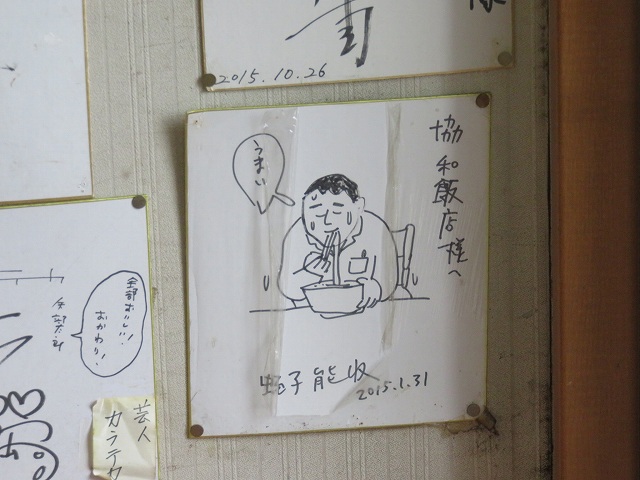 様
2015.10.26
協和飯店様へ
うまい!
蛭子能収
2015.1.31
全部おいしい!
おかわり!
芸人
カラテカ